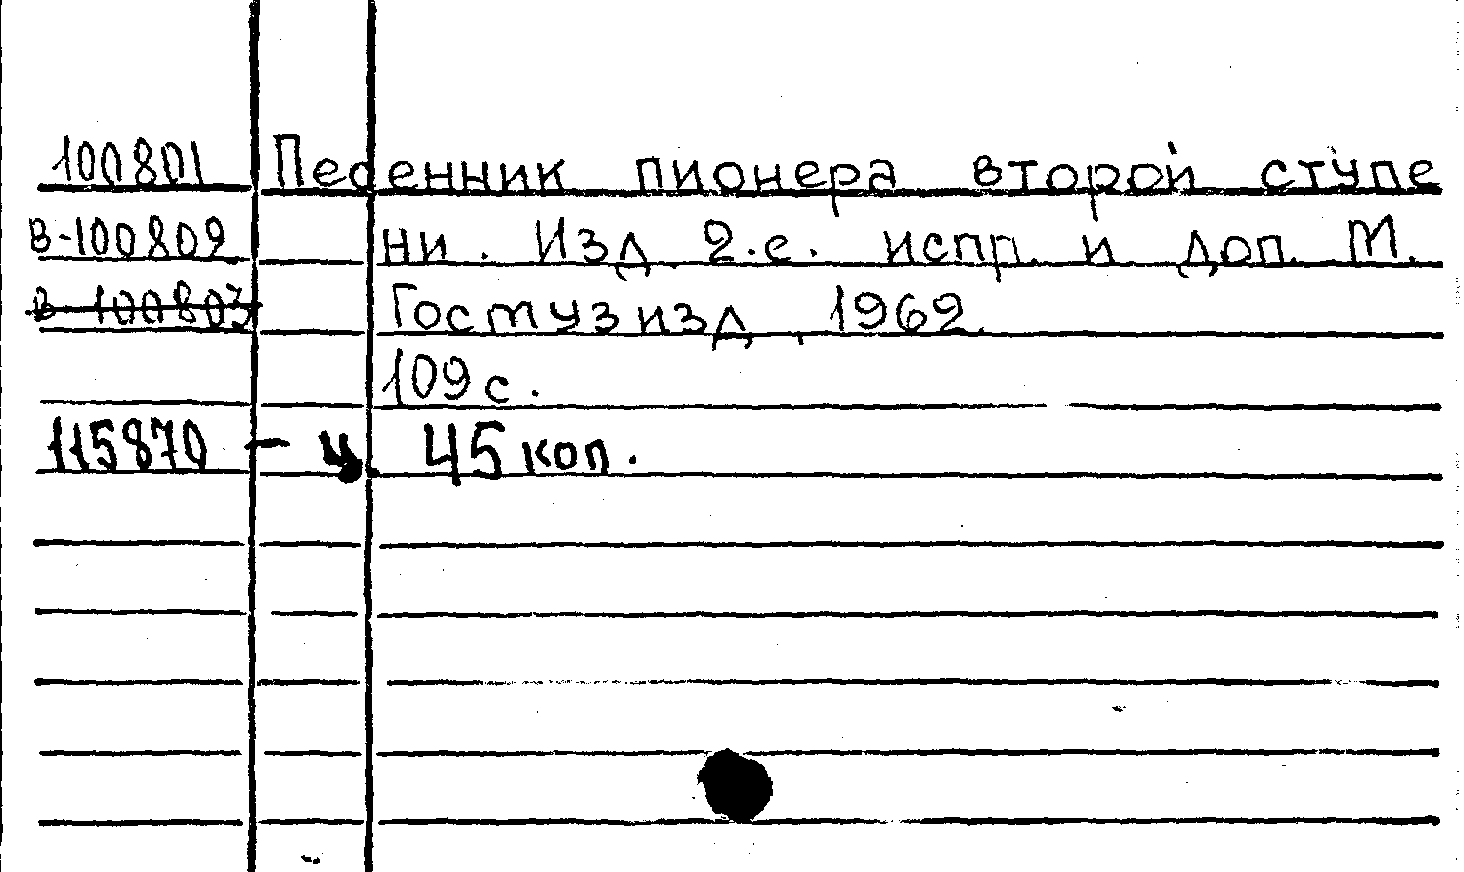 100801 Песенник пионера второй ступе
В-100802 ни. Изд 2.е. испр. и доп. М.
В-100803 Гостузизд, 1962.
109 с.
115870 - ч. 45 коп.